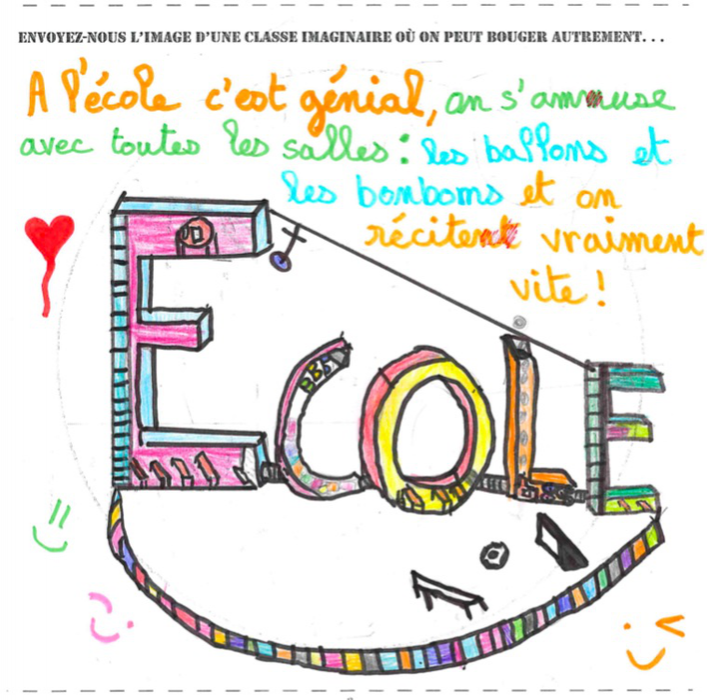 ENVOYEZ-NOUS L'IMAGE D'UNE CLASSE IMAGINAIRE OÙ ON PEUT BOUGER AUTREMENT...
A l'école c'est génial, on s'ammuse
avec toutes les salles : les ballons et
les bonboms et on
récitent vraiment
vite !
ECOLE